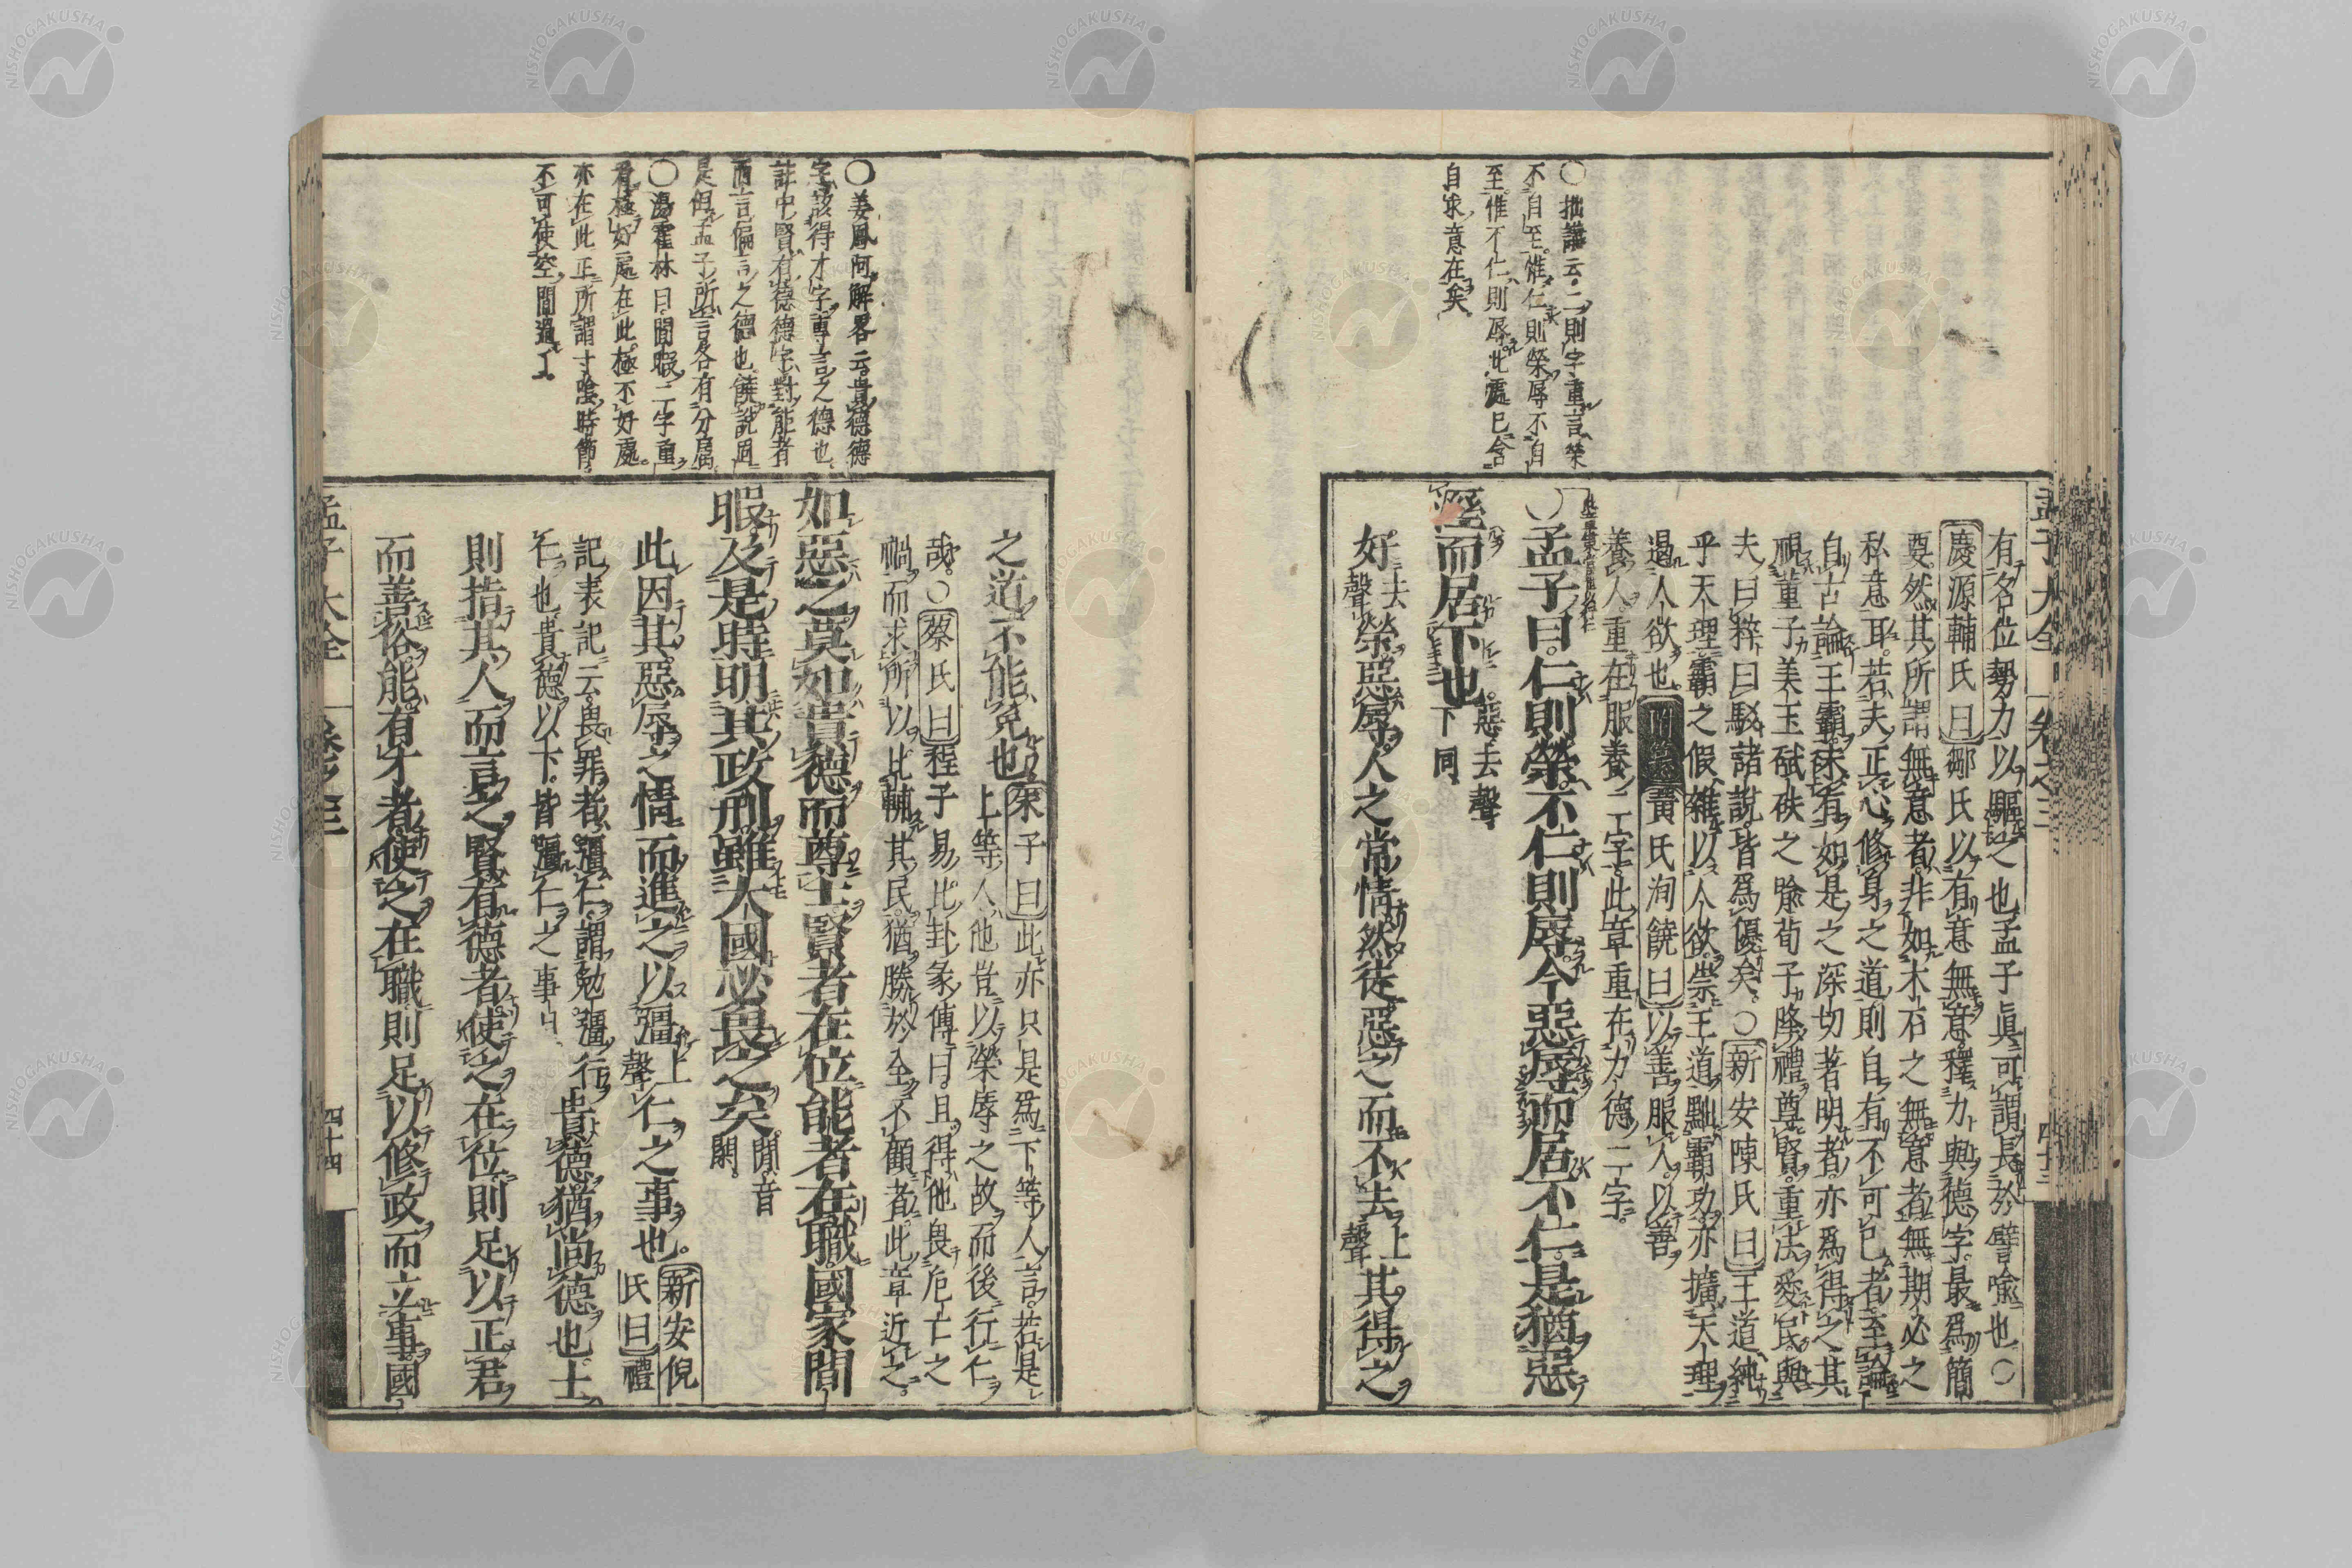 ○拙講云二則字重言榮
不自至惟仁則榮辱不自
至惟不仁則辱此處已含
自求意在矣
孟子大全 卷之三 四十三
有名位勢力以驅之也孟子眞可謂長於譬喩也○
慶源輔氏曰鄒氏以有意無意釋力與德字最爲簡
要然其所謂無意者非如木石之無意者無期必之
私意耳若夫正心修身之道則自有不可已者至論
自古論王霸未有如是之深切著明者亦爲得之其
視董子美玉碔砆之喩荀子隆禮尊賢重法愛民與
夫曰粹曰駁諸說皆爲優矣○新安陳氏曰王道純
乎天理霸之假雜以人欲崇王道黜霸功亦擴天理
遏人欲也附纂黃氏洵饒曰以善服人以善
養人重在服養二字此章重在力德二字
○孟子曰仁則榮不仁則辱今惡辱而居不仁是猶惡
溼而居下也惡去聲下同
好去聲榮惡辱人之常情然徒惡之而不去上聲其得之
○姜鳳阿解畧云貴德德
字該得才字專言之德也
註中賢有德德字對能者
而言偏言之德也饒說固
是但孟子所言各有分屬
○湯霍林曰閒暇二字重
看極好處在此極不好處
亦在此正所謂寸陰時節
不可使空閒過了
之道不能免也朱子曰此亦只是爲下等人言若是
上等人他豈以榮辱之故而後行仁
哉○蔡氏曰程子易比卦彖傳曰且得他畏危亡之
禍而求所以比輔其民猶勝於全不顧者此章近之
如惡之莫如貴德而尊士賢者在位能者在職國家閒
暇及是時明其政刑雖大國必畏之矣閒音閑
此因其惡辱之情而進之以彊上聲仁之事也新安倪氏曰禮
記表記云畏罪者彊仁謂勉彊行
仁也貴德以下皆彊仁之事
貴德猶尚德也士
則指其人而言之賢有德者使之在位則足以正君
而善俗能有才者使之在職則足以修政而立事國
孟子大全 卷之三 四十四